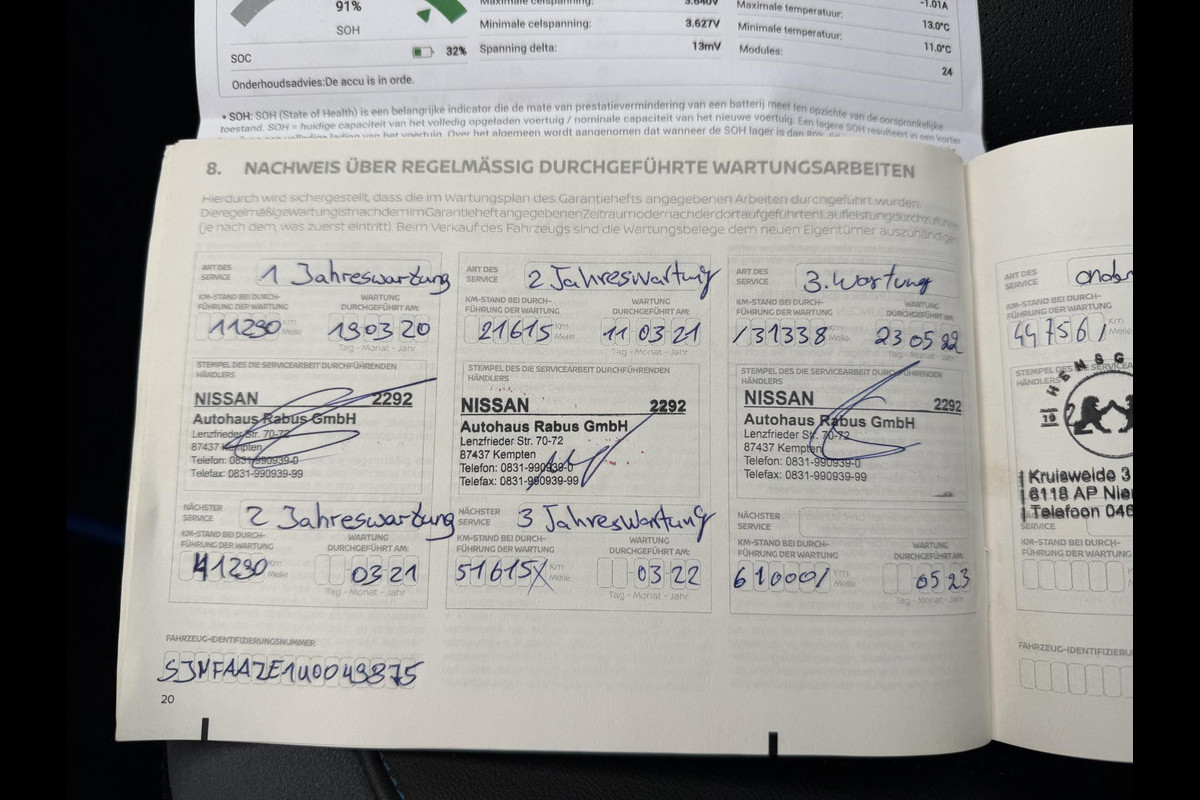 91%
SOH
SOC 32%
Maximale celspanning: 3.640V
Minimale celspanning: 3.627V
Spanning delta: 13mV
-1.01A
Maximale temperatuur: 13.0°C
Minimale temperatuur: 11.0°C
Modules: 24
Onderhoudsadvies:De accu is in orde.
• SOH: SOH (State of Health) is een belangrijke indicator die de mate van prestatievermindering van een batterij meet ten opzichte van de oorspronkelijke
toestand. SOH = huidige capaciteit van het volledig opgeladen voertuig / nominale capaciteit van het nieuwe voertuig. Een lagere SOH resulteert in een korter
van het voertuig. Over het algemeen wordt aangenomen dat wanneer de SOH lager is dan
8. NACHWEIS ÜBER REGELMÄSSIG DURCHGEFÜHRTE WARTUNGSARBEITEN
Hierdurch wird sichergestellt, dass die im Wartungsplan des Garantiehefts angegebenen Arbeiten durchgeführt wurden.
DieregelmäßigewartungistnachdemimGarantieheftangegebenenZeitraumodernachderdortaufgeführtenLaufleistungdurchzuführen
(je nach dem, was zuerst eintritt). Beim Verkauf des Fahrzeugs sind die Wartungsbelege dem neuen Eigentümer auszuhändigen
ART DES SERVICE 1 Jahreswartung
KM-STAND BEI DURCH-FÜHRUNG DER WARTUNG
WARTUNG DURCHGEFÜHRT AM:
11290 Km Meile 19 03 20
Tag - Monat - Jahr
STEMPEL DES DIE SERVICEARBEIT DURCHFÜHRENDEN
HÄNDLERS
NISSAN 2292
Autohaus Rabus GmbH
Lenzfrieder Str. 70-72
87437 Kempten
Telefon: 0831-990939-0
Telefax: 0831-990939-99
NÄCHSTER SERVICE 2 Jahreswartung
KM-STAND BEI DURCH-FÜHRUNG DER WARTUNG
WARTUNG DURCHGEFÜHRT AM:
41290 Km Meile 03 21
Tag - Monat - Jahr
ART DES SERVICE 2 Jahreswartung
KM-STAND BEI DURCH-FÜHRUNG DER WARTUNG
WARTUNG DURCHGEFÜHRT AM:
21615 Km Meile 11 03 21
Tag - Monat - Jahr
STEMPEL DES DIE SERVICEARBEIT DURCHFÜHRENDEN
HÄNDLERS
NISSAN 2292
Autohaus Rabus GmbH
Lenzfrieder Str. 70-72
87437 Kempten
Telefon: 0831-990939-0
Telefax: 0831-990939-99
NÄCHSTER SERVICE 3 Jahreswartung
KM-STAND BEI DURCH-FÜHRUNG DER WARTUNG
WARTUNG DURCHGEFÜHRT AM:
51615 Km Meile 03 22
Tag - Monat - Jahr
ART DES SERVICE 3. Wartung
KM-STAND BEI DURCH-FÜHRUNG DER WARTUNG
WARTUNG DURCHGEFÜHRT AM:
/31338 Km Meile 23 05 22
Tag - Monat - Jahr
STEMPEL DES DIE SERVICEARBEIT DURCHFÜHRENDEN
HÄNDLERS
NISSAN 2292
Autohaus Rabus GmbH
Lenzfrieder Str. 70-72
87437 Kempten
Telefon: 0831-990939-0
Telefax: 0831-990939-99
NÄCHSTER SERVICE
KM-STAND BEI DURCH-FÜHRUNG DER WARTUNG
WARTUNG DURCHGEFÜHRT AM:
61000/ Km Meile 05 23
Tag - Monat - Jahr
FAHRZEUG-IDENTIFIZIERUNGSNUMMER
SJNFAAZE1U0049875
20
ART DES SERVICE onder
KM-STAND BEI DURCH-
FÜHRUNG DER WARTUNG
44756/ Km Meile
STEMPEL DES DIE SERVICEA
HÄNDLERS
HENSG
19
Kruisweide 3
6118 AP Nie
Telefoon 046
SERVICE
KM-STAND BEI DURCH-
FÜHRUNG DER WARTUNG
Km Meile
FAHRZEUG-IDENTIFIZIER